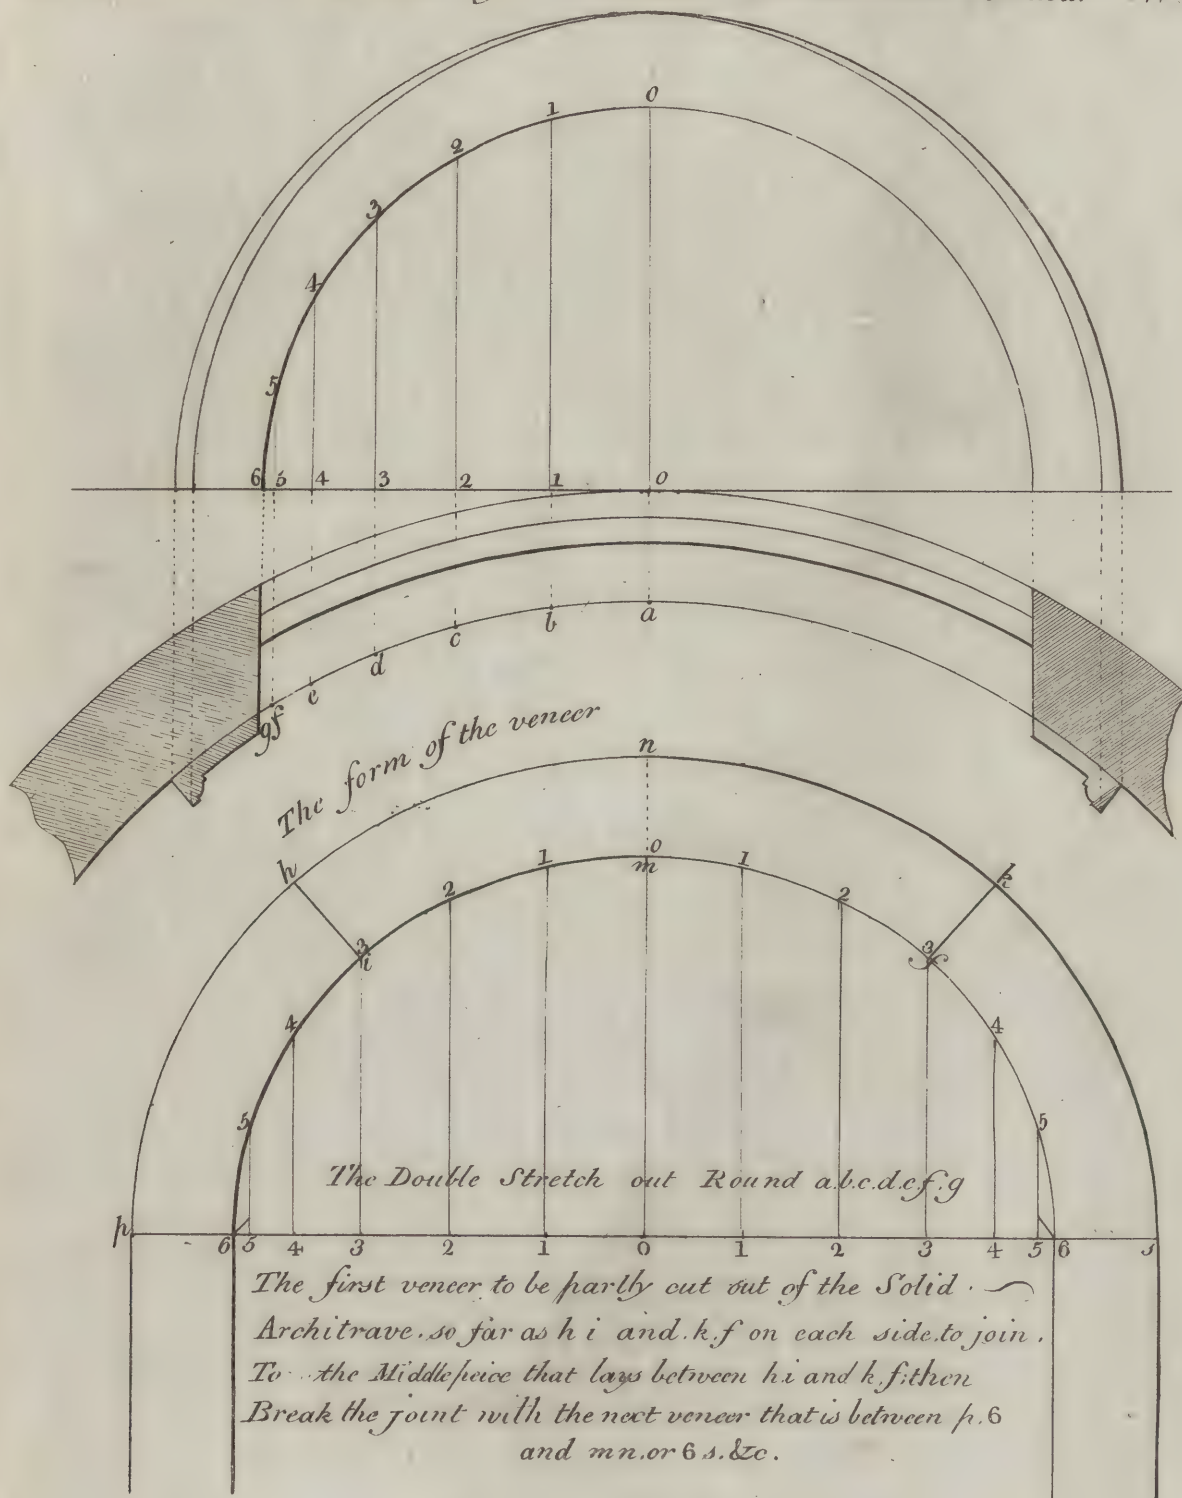 0
1
2
3
4
5
6 5 4 3 2 1 0
a
b
c
d
e
gf
The form of the veneer
n
h
k
0
1 m 1
2 2
3 3
i f
4 4
5 5
The Double Stretch out Round a.b.c.d.e.f.g
p 6 5 4 3 2 1 0 1 2 3 4 5 6 s
The first veneer to be partly cut out of the Solid .
Architrave . so far as h i and . k . f on each side . to join .
To the Middle peice that lays between h.i and k.f: then
Break the joint with the next veneer that is between p.6
and mn . or 6 s. &c .